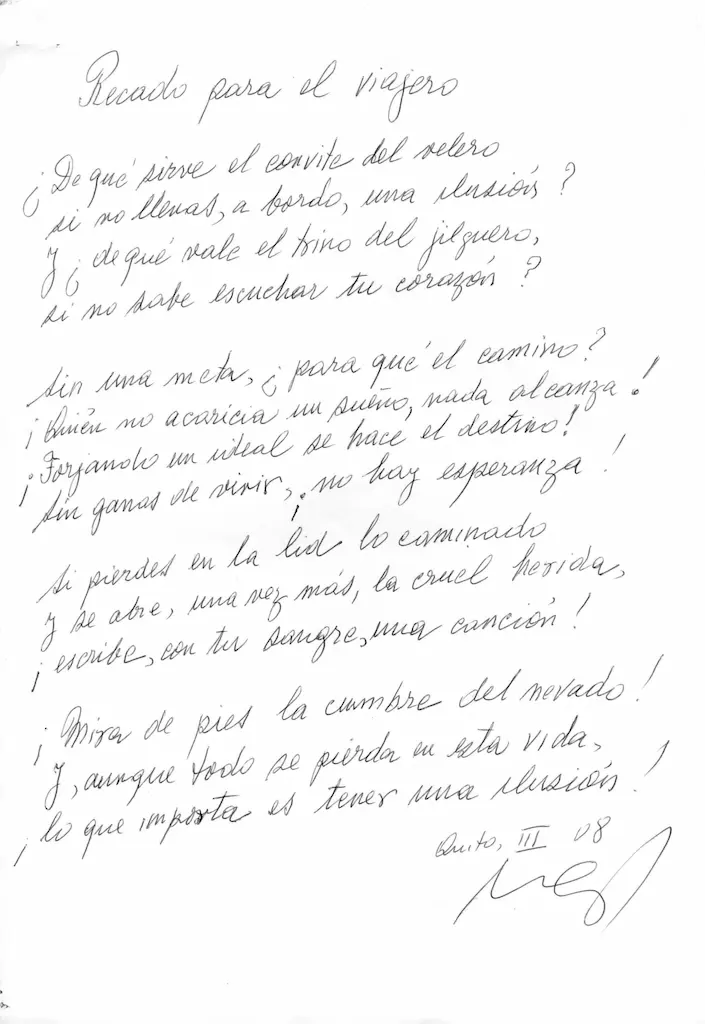 Recado para el viajero
¿De qué sirve el convite del velero
si no llevas, a bordo, una ilusión?
Y ¿de qué vale el trino del jilguero,
si no sabe escuchar tu corazón?
Sin una meta, ¿para qué el camino?
¡Quién no acaricia un sueño, nada alcanza!
¡Forjando un ideal se hace el destino!
Sin ganas de vivir, ¡no hay esperanza!
Si pierdes en la lid lo caminado
y se abre, una vez más, la cruel herida,
¡escribe, con tu sangre, una canción!
¡Mira de pies la cumbre del nevado!
Y, aunque todo se pierda en esta vida,
¡lo que importa es tener una ilusión!
Quito, III 08